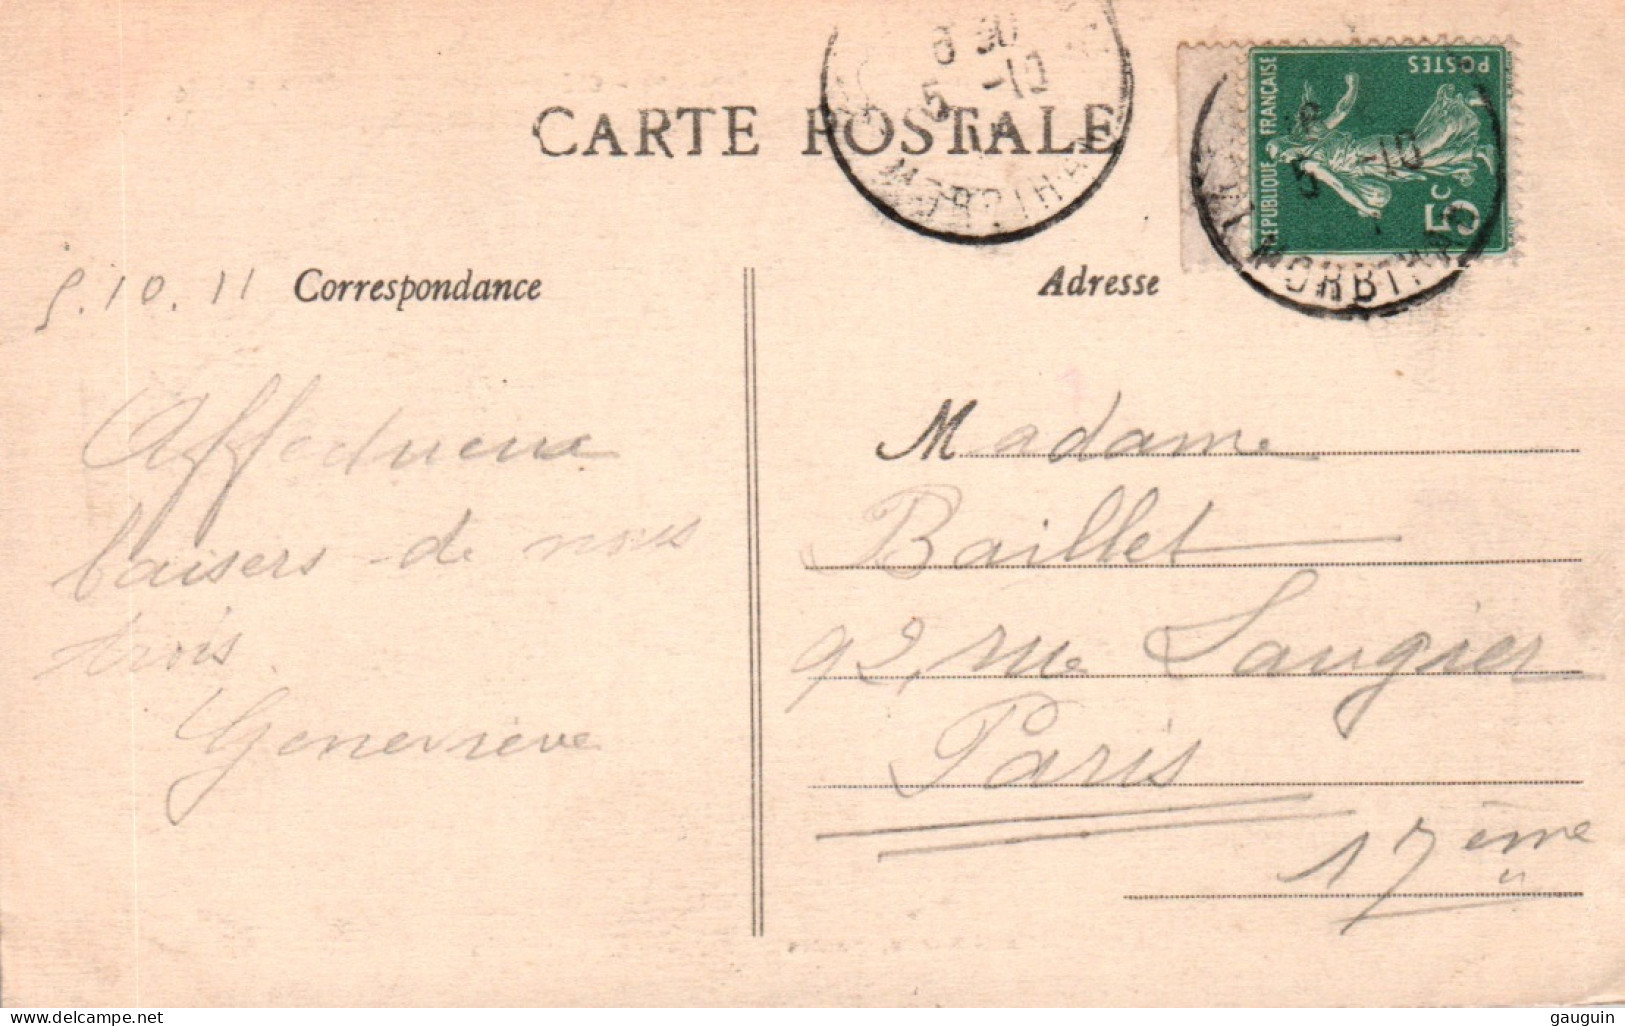 CARTE POSTALE
8 30
5 -10
11
MORBIHAN
RÉPUBLIQUE FRANÇAISE
POSTES
5c
5 -10
MORBIHAN
5.10.11 Correspondance
Affectueux
baisers de nous
trois
Geneviève
Adresse
Madame
Baillet
92, rue Laugier
Paris
17ème
delcampe.net
gauguin